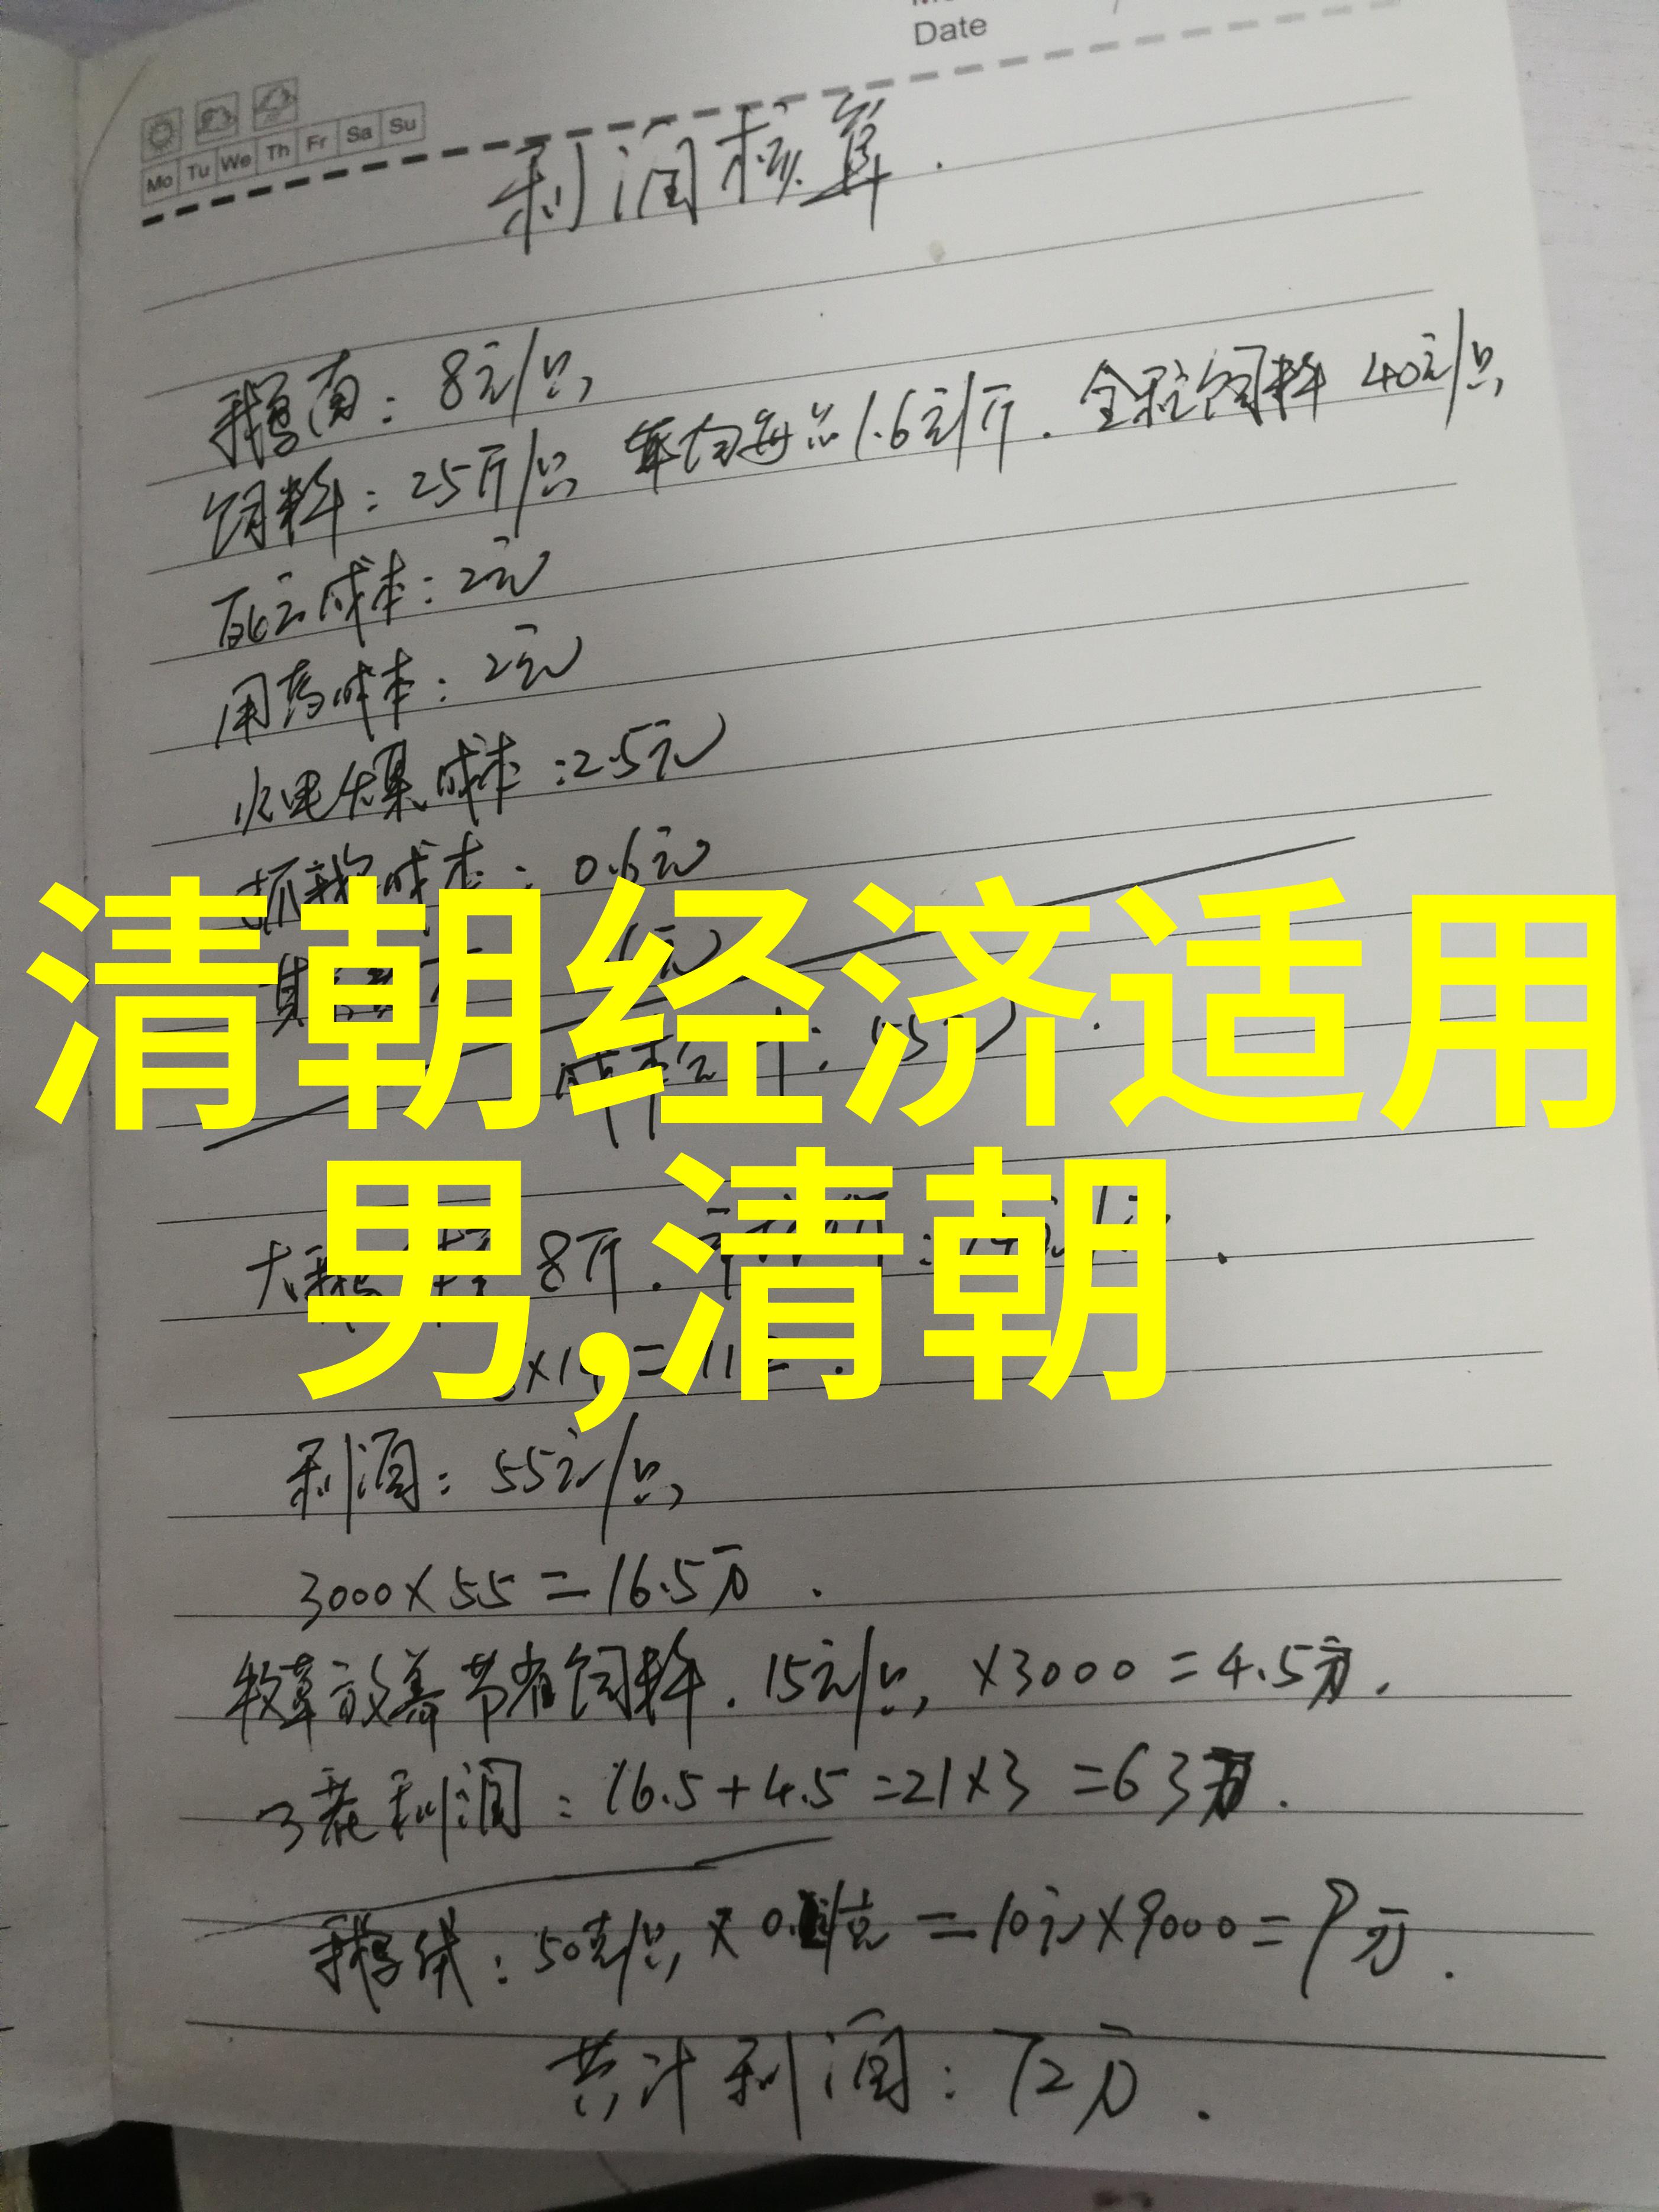 Date
Mo Tu We Th Fr Sa Su
利润核算.
鹅苗: 8元/只,
饲料: 25斤/只, 平均每斤1.6元/斤. 全程饲料 40元/只,
死亡成本: 2元
用药成本: 2元
水电煤成本: 2.5元
抓鹅成本: 0.6元
清朝经济适用
男,清朝
8斤.
利润: 55元/只,
3000×55=16.5万.
牧草放养节省饲料. 15元/只, ×3000=4.5万.
3茬利润: 16.5+4.5=21×3=63万.
鹅绒: 50克/只, =10元×9000=9万.
共计利润: 72万.